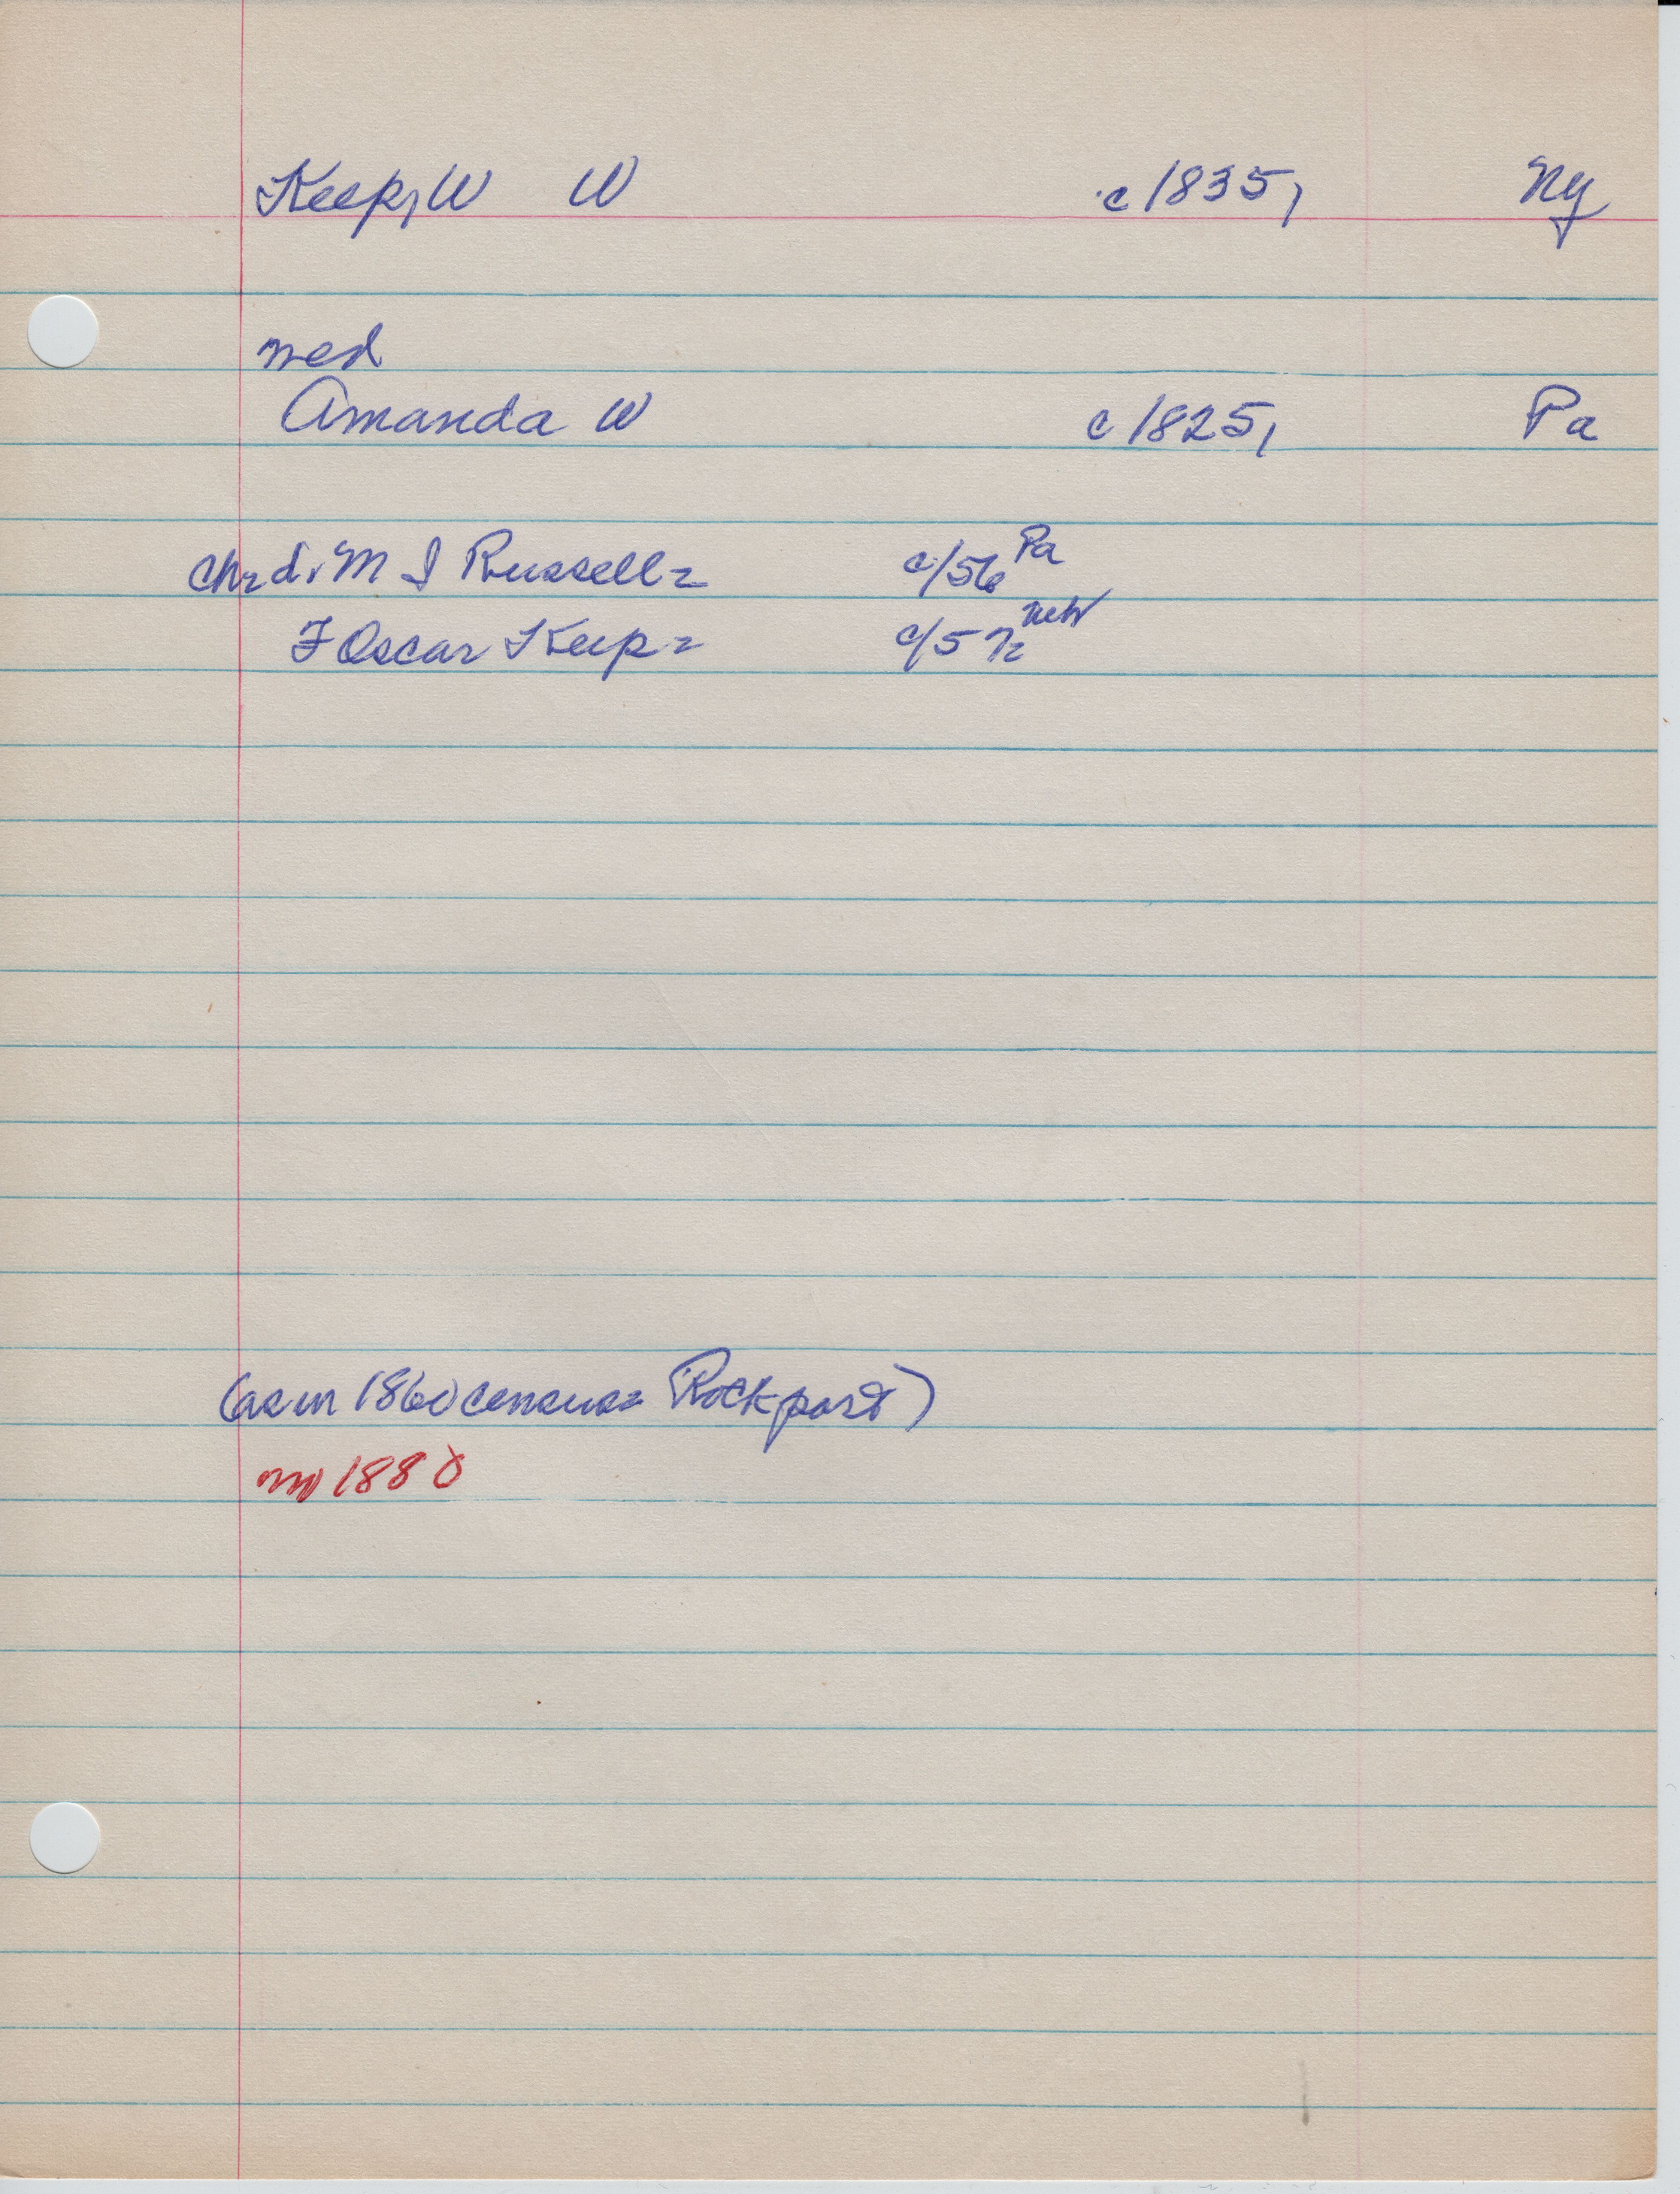 Keep, W W c 1835, Ny
med
Amanda W c 1825, Pa
Chrd. M J Russell= c/56 Pa
F Oscar Keep= c/57= neb
(as in 1860 census= Rockport)
no 1880